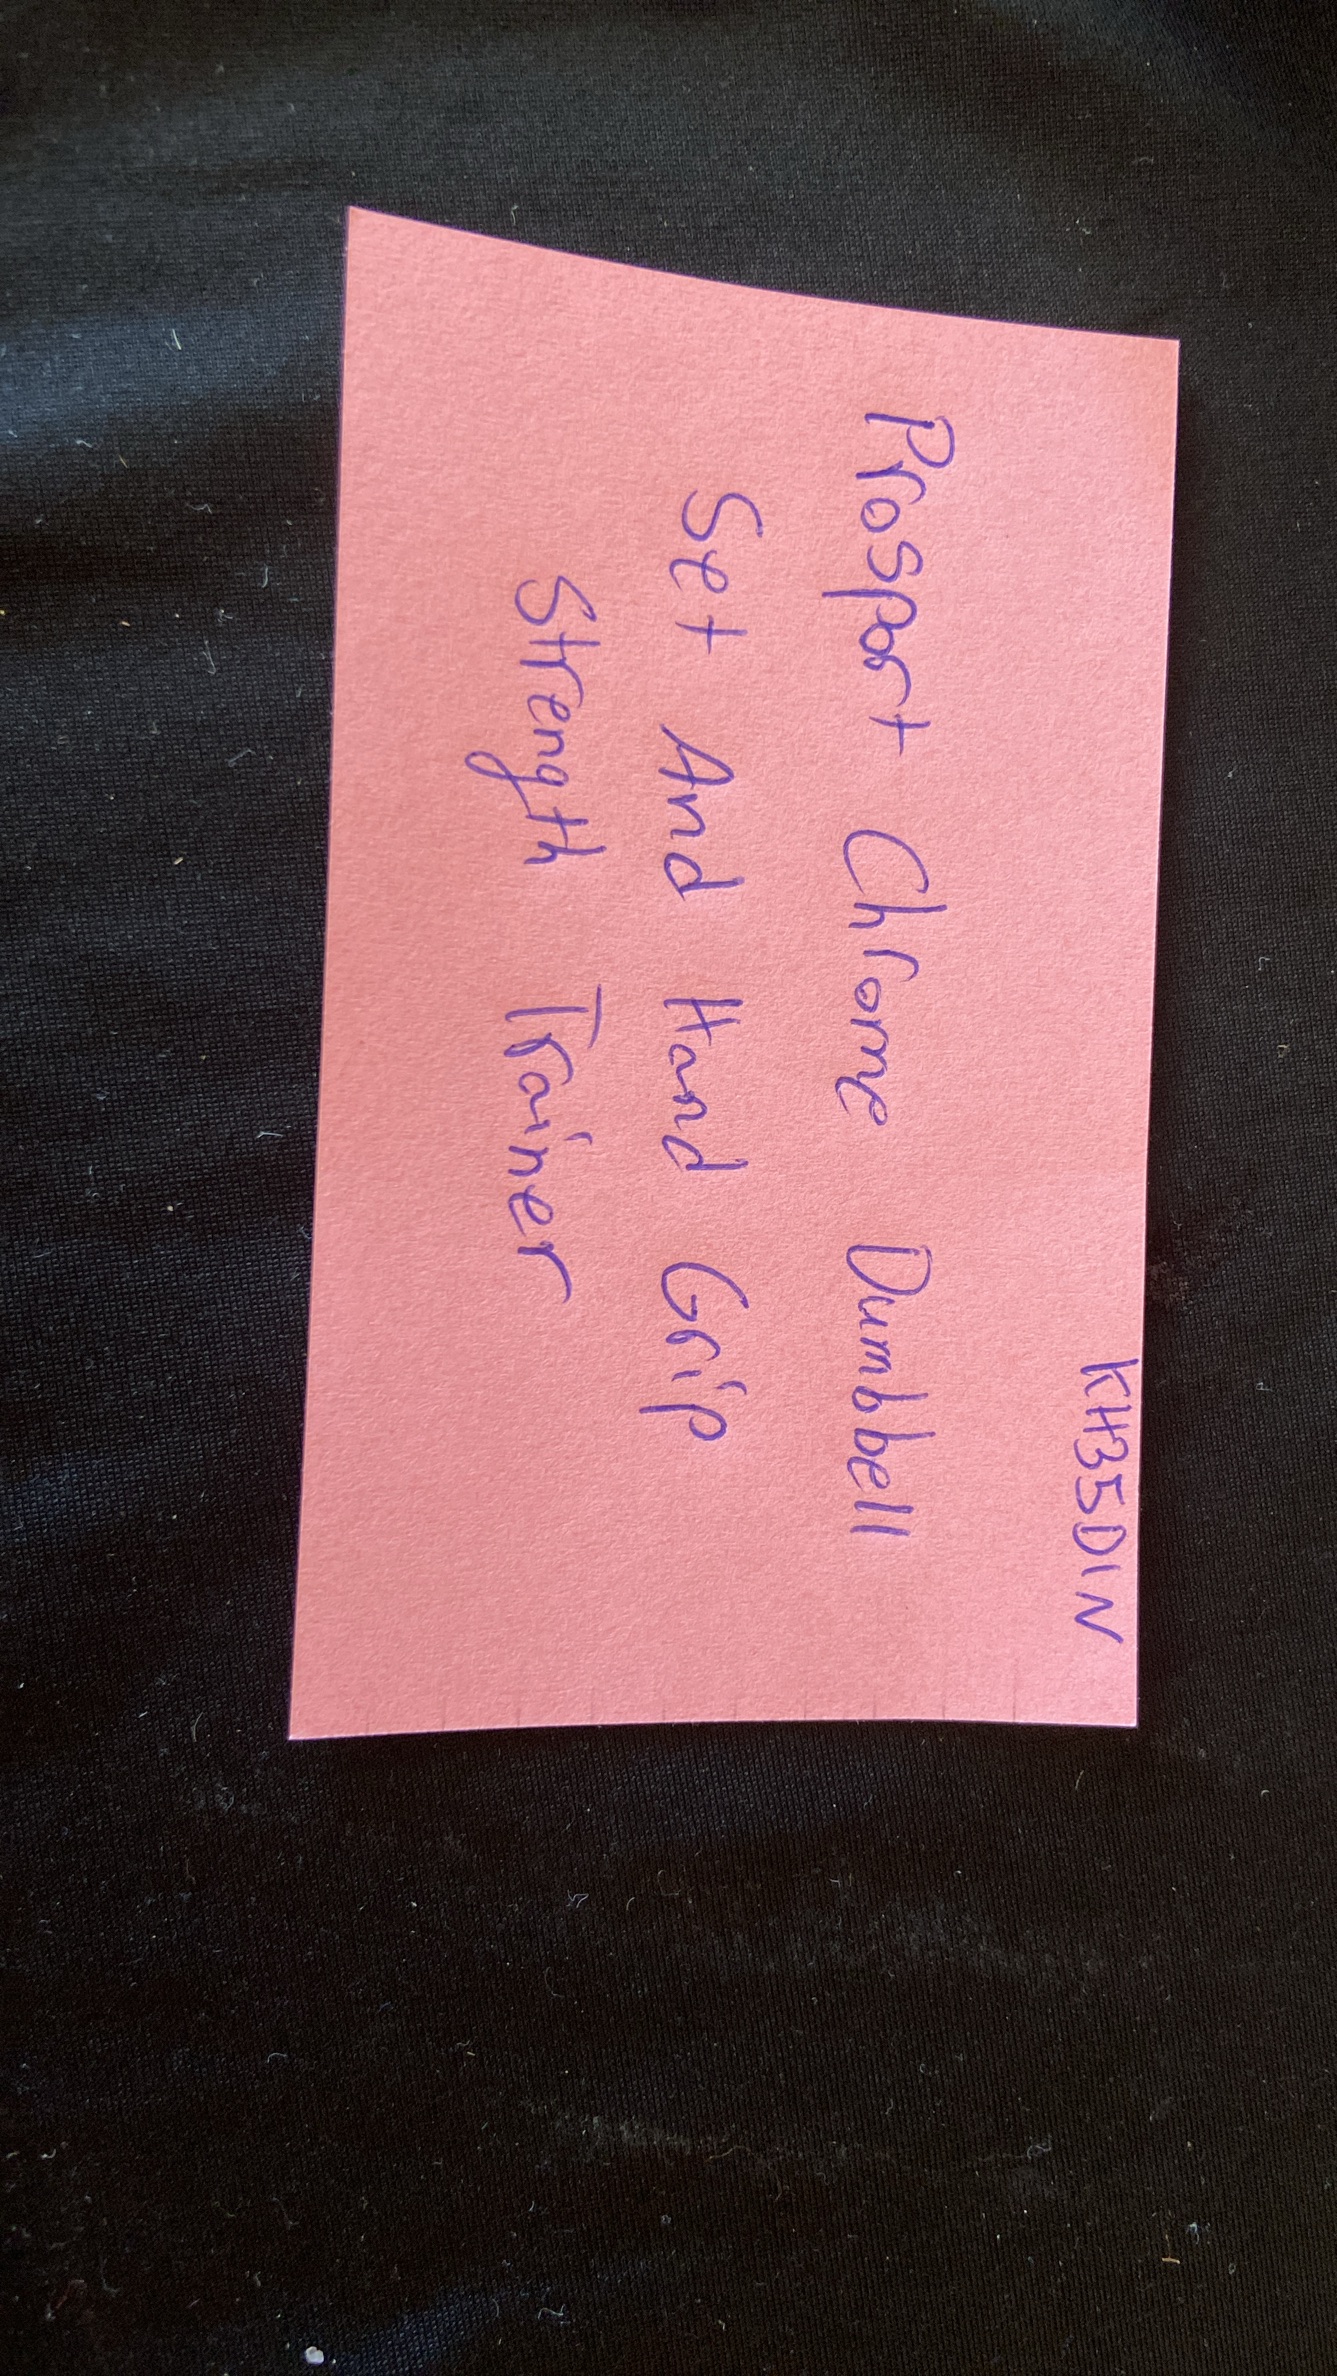 KH35DIN
Prosport Chrome Dumbbell
Set And Hand Grip
Strength Trainer